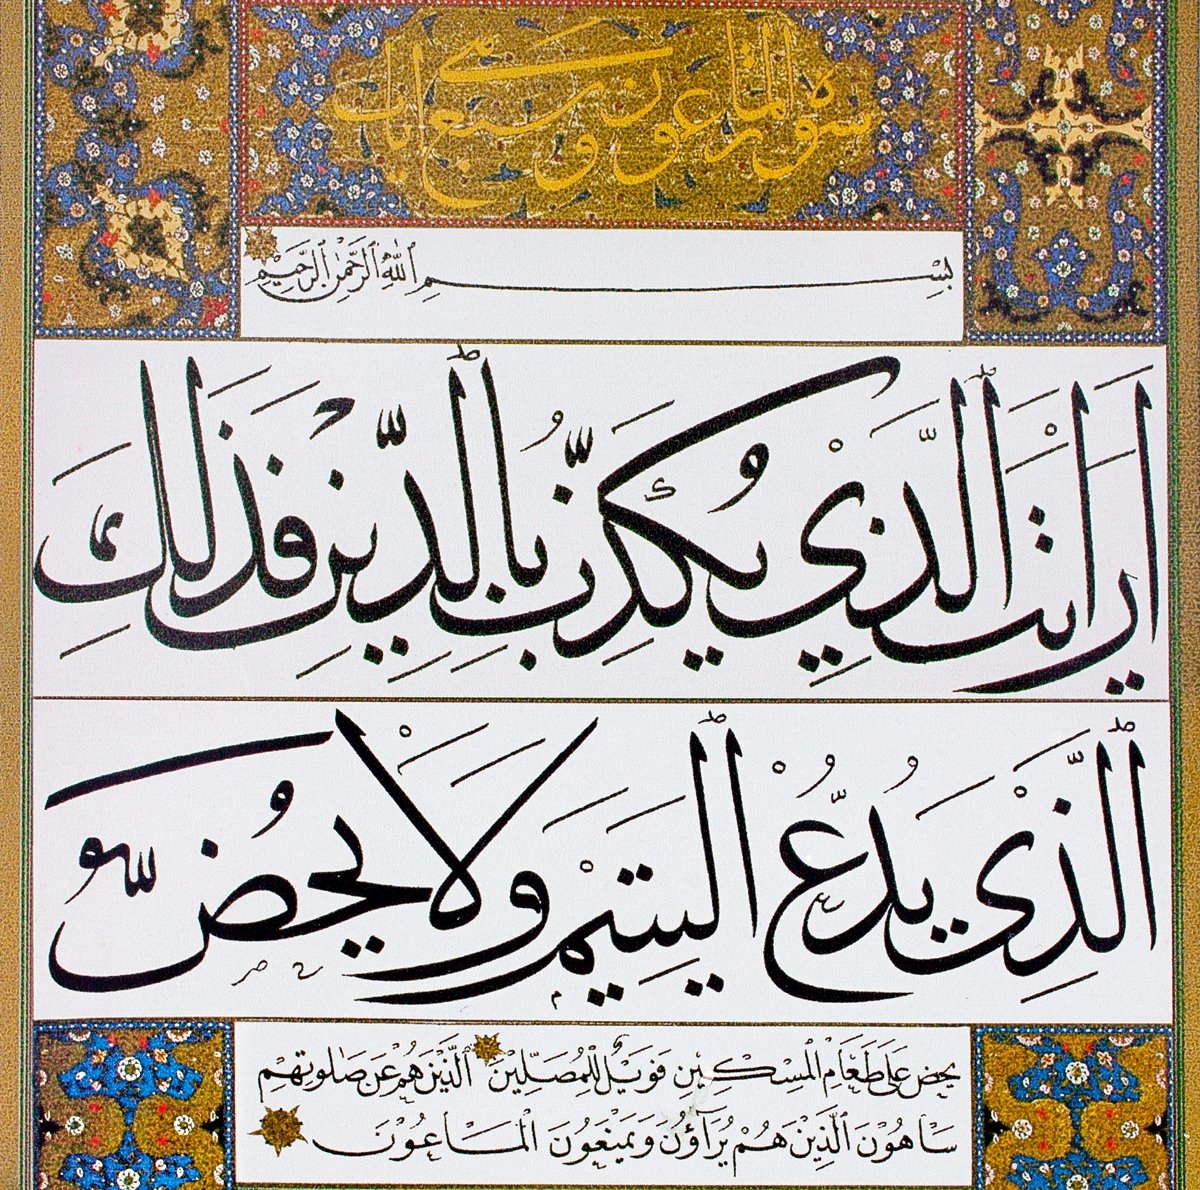 سورة الماعون و سبع ايات
بِسْمِ ٱللّٰهِ ٱلرَّحْمٰنِ ٱلرَّحِيْمِ
اَرَاَيْتَ الَّذِيْ يُكَذِّبُ بِالدِّيْنِ فَذٰلِكَ
الَّذِيْ يَدُعُّ الْيَتِيْمَ وَلَا يَحُضُّ
يحض عَلَى طَعَامِ الْمِسْكِيْنِ فَوَيْلٌ لِلْمُصَلِّيْنَ الَّذِيْنَ هُمْ عَنْ صَلٰوتِهِمْ
سَاهُوْنَ الَّذِيْنَ هُمْ يُرَآؤُنَ وَيَمْنَعُوْنَ الْمَاعُوْنَ